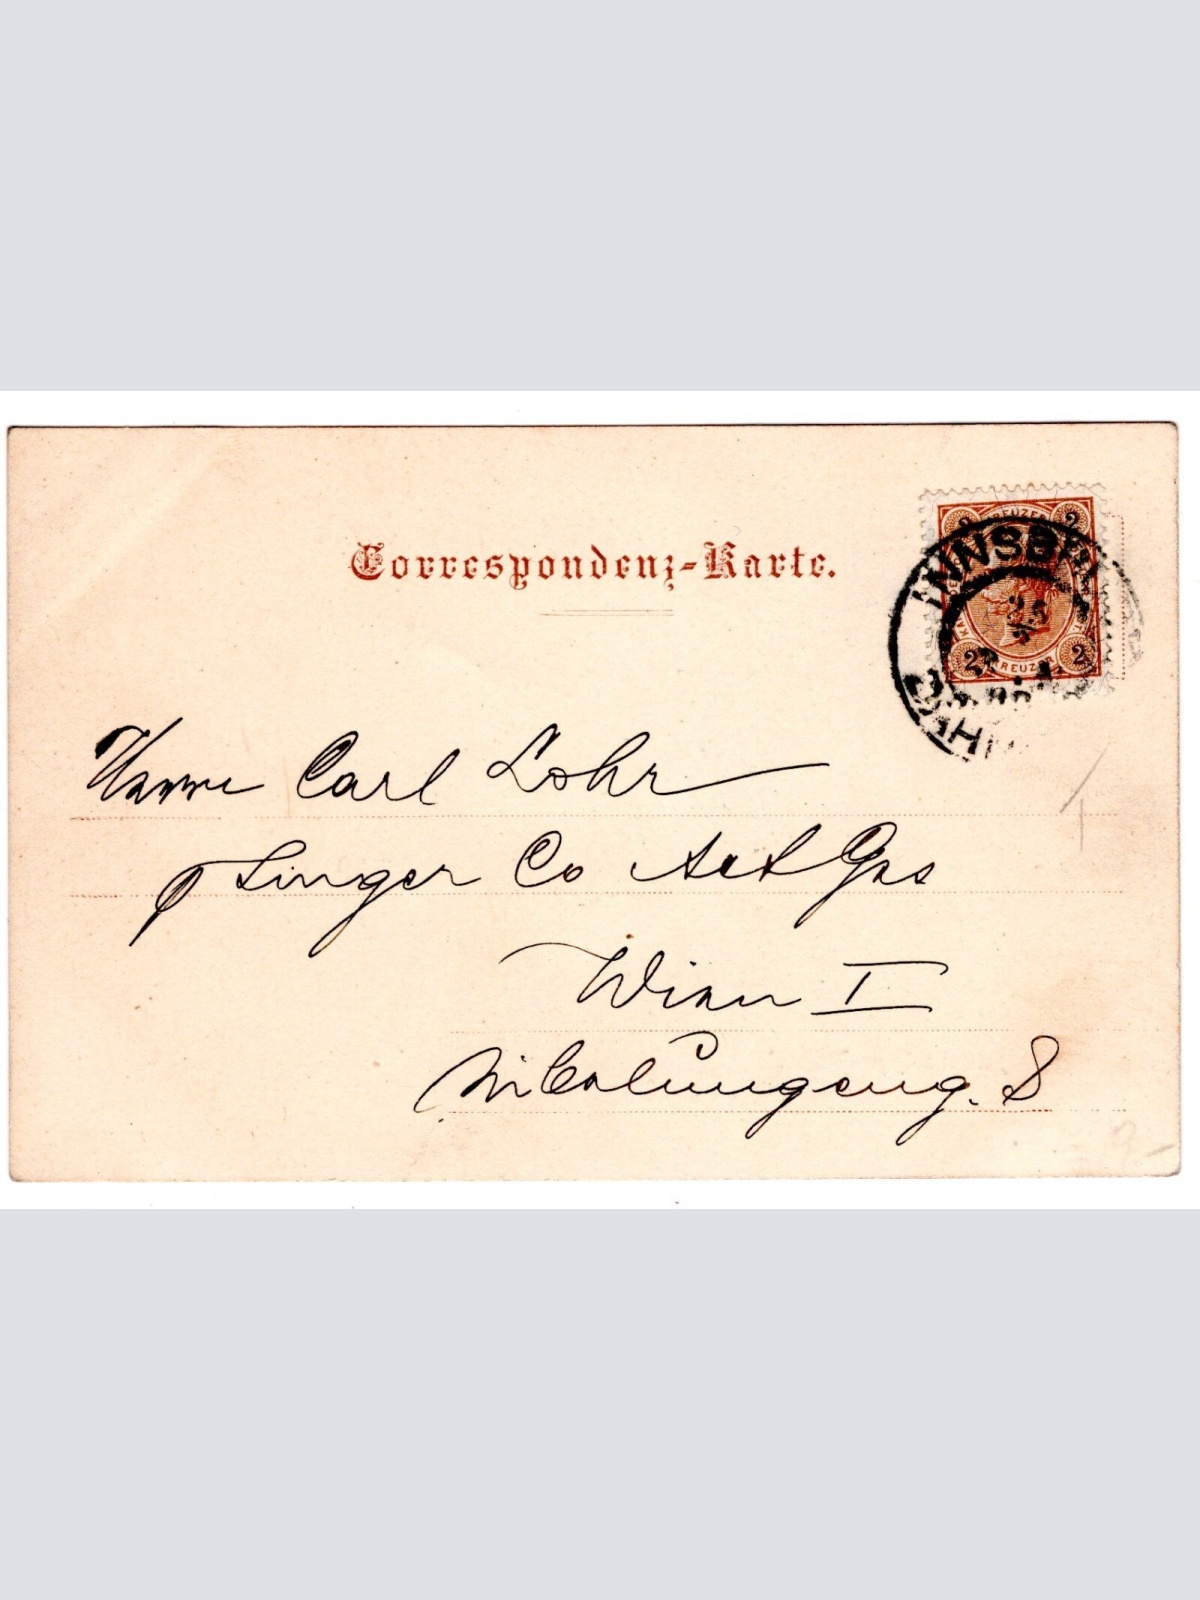 Correspondenz-Karte.
INNSBRUCK
25
2 KREUZER 2
Herrn Carl Lohr
p Singer Co Act Ges
Wien I
Nibelungeng. 8